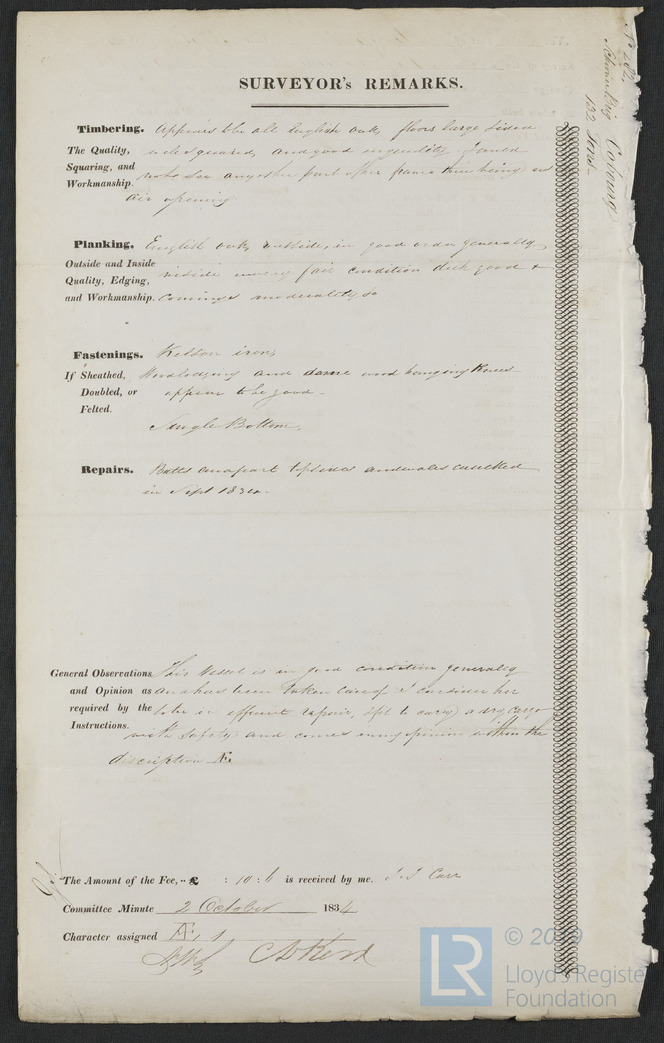 No 282.
Schooner Brig Coburg
132 Tons
SURVEYOR's REMARKS.
Timbering. Appears to be all English oak, floors large sized
The Quality, well squared, and good in quality. I could
Squaring, and not see any other part of her frame there being no
Workmanship. air opening
Planking. English oak, outside, in good order generally
Outside and Inside inside in very fair condition deck good &
Quality, Edging, Comings moderately so
and Workmanship.
Fastenings. Kelson iron,
If Sheathed, and some wood hanging Knees
Doubled, or appear to be good.
Felted.
Single Bottom.
Repairs. Butts topsides and wales caulked
in Sept 1834.
General Observations This Vessel is in good condition generally
and Opinion as has been taken care of & I consider her
required by the to be in efficient repair, & fit to carry a dry Cargo
Instructions. with safety and comes in my opinion within the
discription Æ
The Amount of the Fee, .. £ : 10 : 6 is received by me. J. J. Carr
Committee Minute 2 October 1834
Character assigned Æ 1
© 2019
LR
Lloyd's Register
Foundation